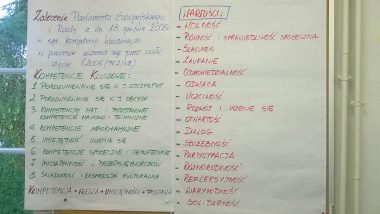 Zalecenie Parlamentu Europejskiego
i Rady z dn. 18 grudnia 2006
w spr. kompetencji kluczowych
w procesie uczenia się przez całe
życie (2006/962/WE)
KOMPETENCJE KLUCZOWE:
1. POROZUMIEWANIE SIĘ W J. OJCZYSTYM
2. POROZUMIEWANIE SIĘ W J. OBCYCH
3. KOMPETENCJE MAT. I PODSTAWOWE
KOMPETENCJE NAUKOWO - TECHNICZNE
4. KOMPETENCJE INFORMATYCZNE
5. UMIEJĘTNOŚĆ UCZENIA SIĘ
6. KOMPETENCJE SPOŁECZNE I OBYWATELSKIE
7. INICJATYWNOŚĆ I PRZEDSIĘBIORCZOŚĆ
8. ŚWIADOMOŚĆ I EKSPRESJA KULTURALNA
KOMPETENCJA = WIEDZA + UMIEJĘTNOŚCI + POSTAWA
WARTOŚCI:
- WOLNOŚĆ
- RÓWNOŚĆ I SPRAWIEDLIWOŚĆ SPOŁECZNA
- SZACUNEK
- ZAUFANIE
- ODPOWIEDZIALNOŚĆ
- ODWAGA
- UCZCIWOŚĆ
- ROZWÓJ I UCZENIE SIĘ
- OTWARTOŚĆ
- DIALOG
- SŁUŻEBNOŚĆ
- PARTYCYPACJA
- RÓŻNORODNOŚĆ
- REFLEKSYJNOŚĆ
- WIARYGODNOŚĆ
- SOLIDARNOŚĆ